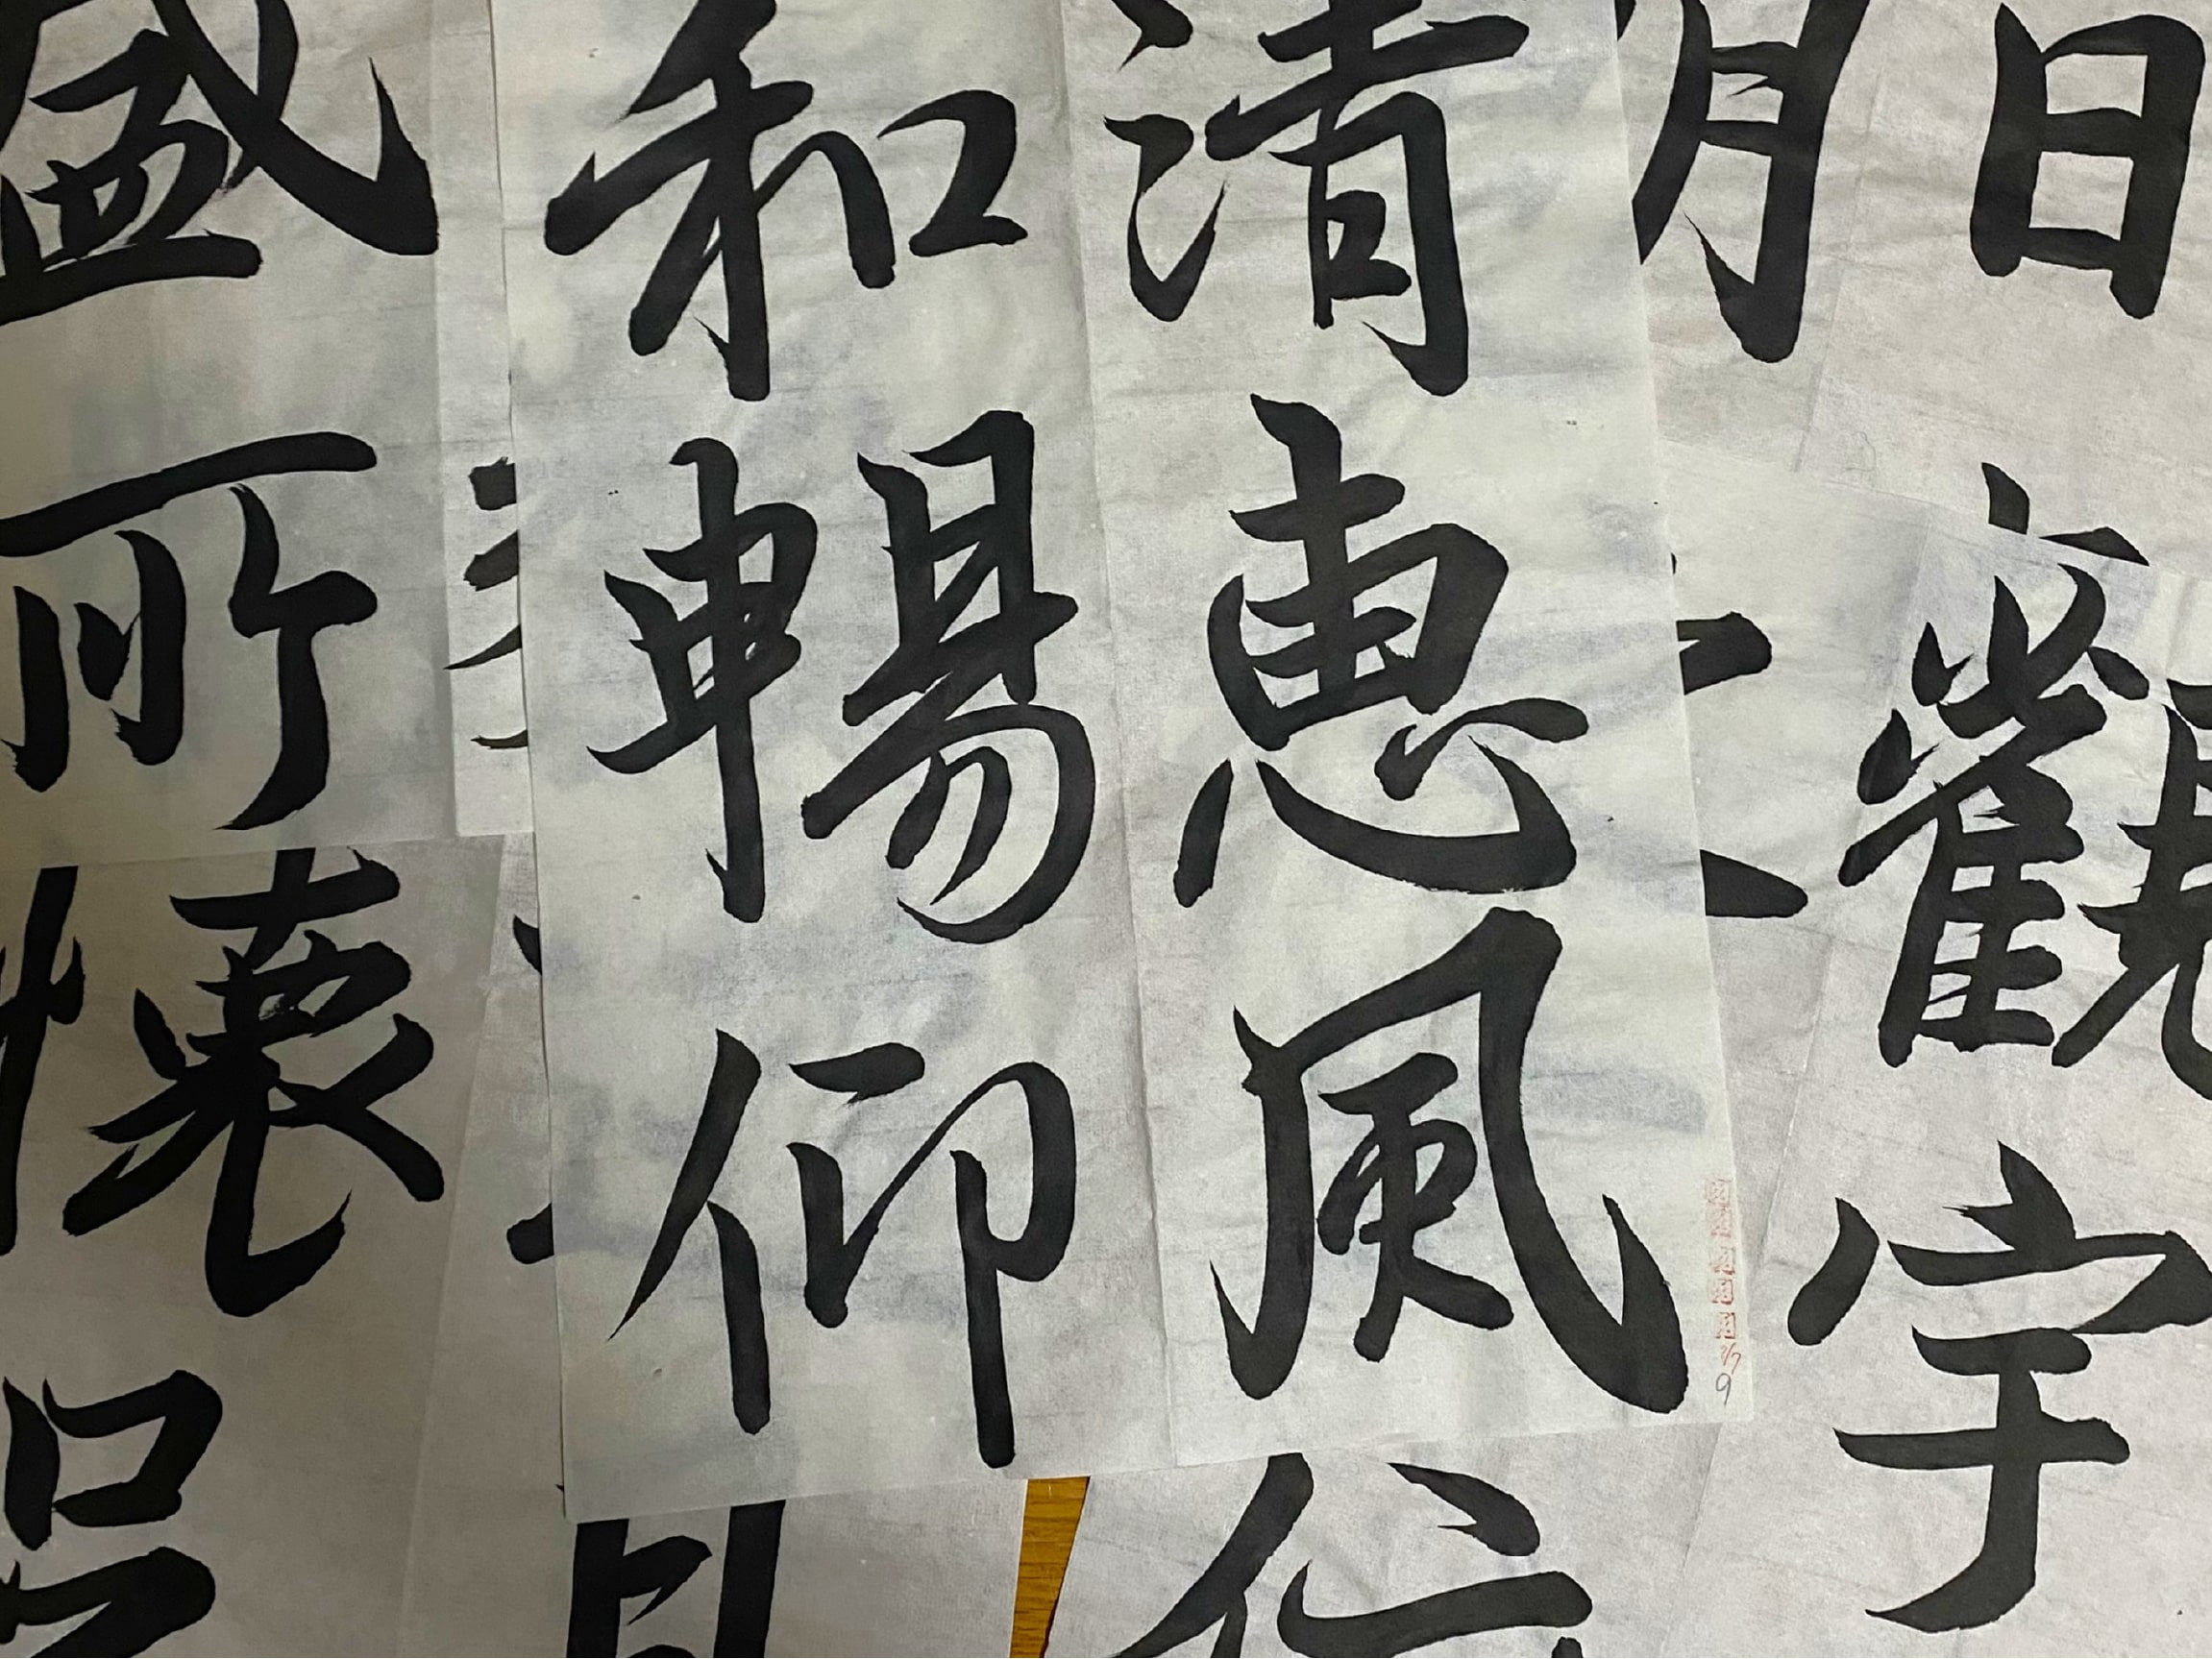 日
觀宇
月
清惠風
和暢仰
盛
所
懷